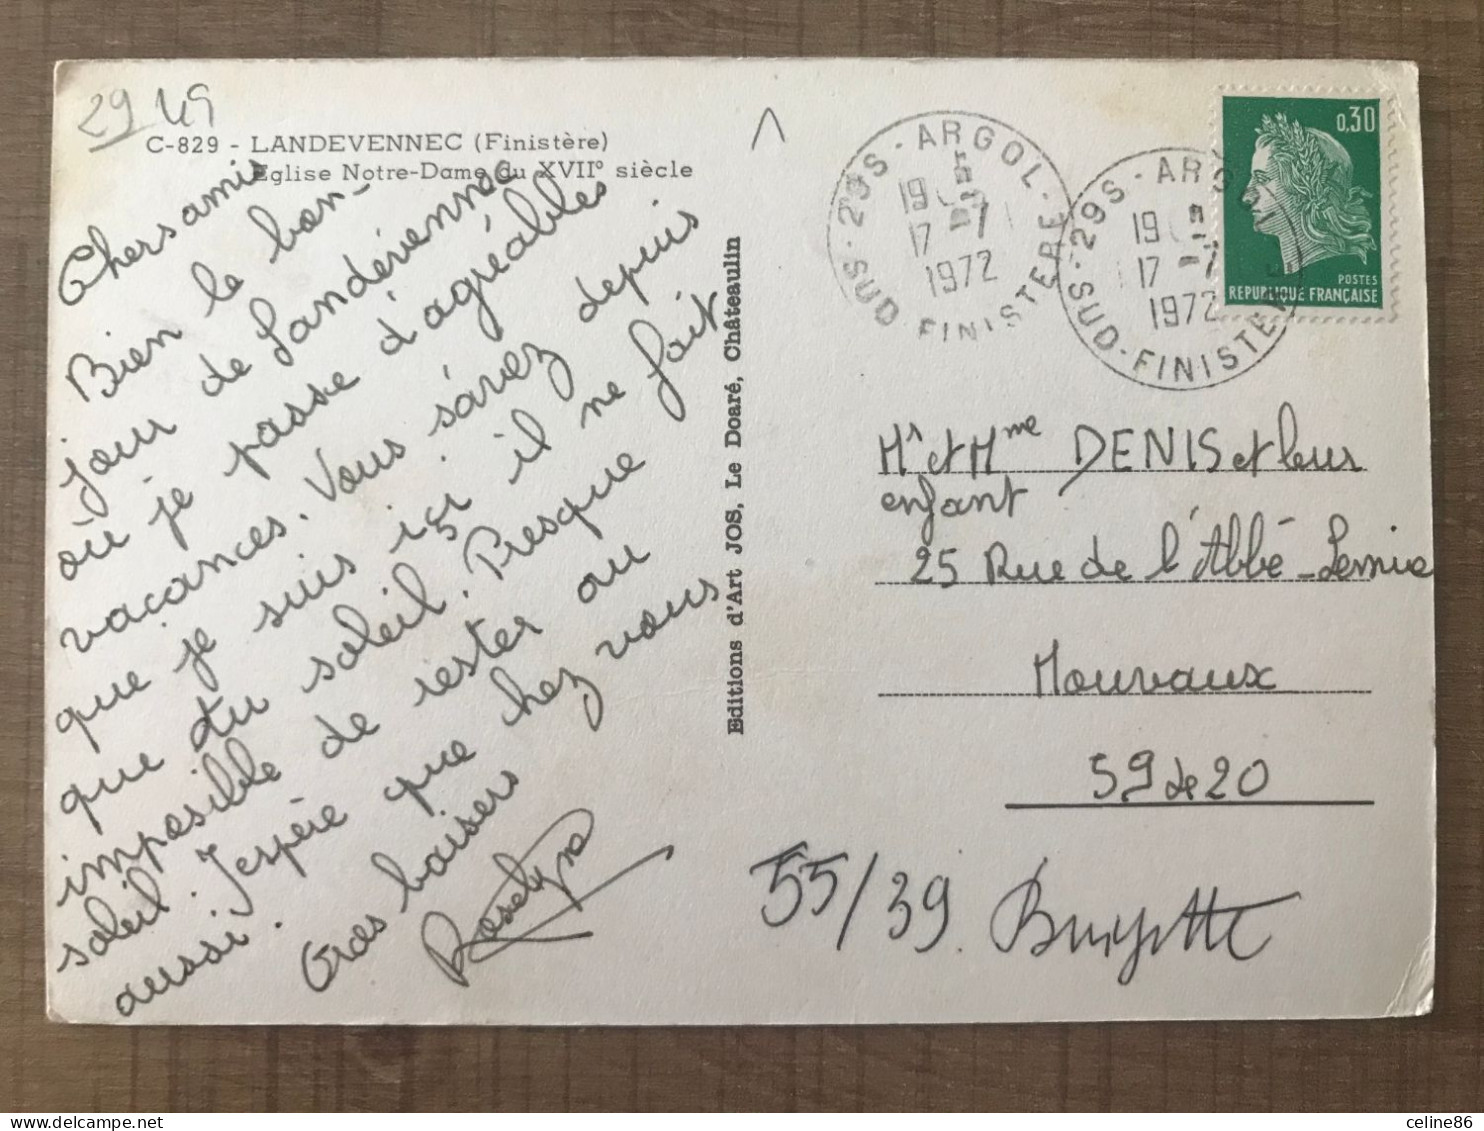 29 49
C-829 - LANDEVENNEC (Finistère)
Eglise Notre-Dame du XVIIº siècle
Chers amis
Bien le bon-
jour de Landévennec
où je passe d'agréables
vacances. Vous sávez depuis
que je suis içi il ne fait
que du soleil. Presque
imposible de rester au
soleil. J'espère que chez vous
aussi.
Gros baisers
Roselyne
Editions d'Art JOS, Le Doaré, Châteaulin
29S - ARGOL - SUD FINISTERE
19
17 -7
1972
29S - ARGOL
SUD-FINISTERE
19
17 -7
1972
0,30
POSTES
REPUBLIQUE FRANÇAISE
Mr et Mme DENIS et leur
enfant
25 Rue de l'Abbé-Lemire
Mouvaux
59420
55/39. Brigitte
celine86